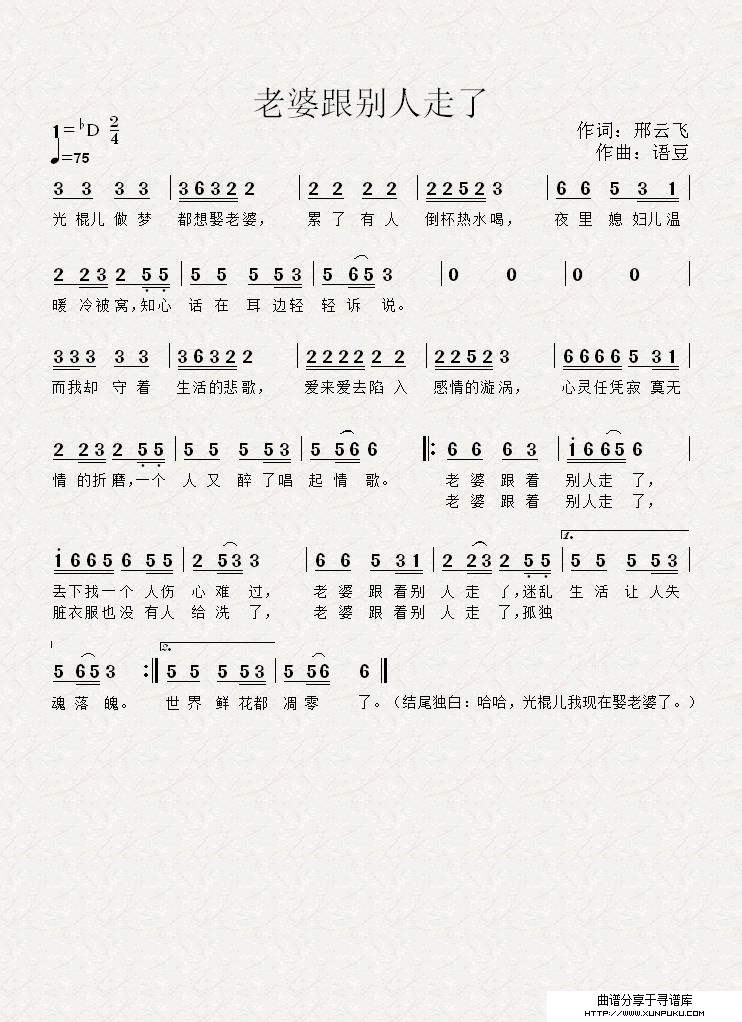 老婆跟别人走了
1=♭D 2/4
作词：邢云飞
♩=75
作曲：语豆
3 3 3 3 | 3 6 3 2 2 2 | 2 2 2 2 | 2 2 5 2 3 | 6 6 5 3 1 |
光棍儿做梦 都想娶老婆， 累了有人 倒杯热水喝， 夜里媳妇儿温
2 2 3 2 5 5 | 5 5 5 5 3 | 5 6 5 3 | 0 0 | 0 0 |
暖冷被窝，知心 话在耳边轻 轻诉说。
3 3 3 3 3 | 3 6 3 2 2 2 | 2 2 2 2 2 2 | 2 2 5 2 3 | 6 6 6 6 5 3 1 |
而我却守着 生活的悲歌， 爱来爱去陷入 感情的漩涡， 心灵任凭寂寞无
2 2 3 2 5 5 | 5 5 5 5 3 | 5 5 6 6 ‖: 6 6 6 3 | 1 6 6 5 6 |
情的折磨，一个 人又醉了唱 起情歌。 老婆跟着 别人走了，
老婆跟着 别人走了，
1.
1 6 6 5 6 5 5 | 2 5 3 3 | 6 6 5 3 1 | 2 2 3 2 5 5 | 5 5 5 5 3
丢下找一个人伤 心难过， 老婆跟着别 人走了，迷乱 生活让人失
脏衣服也没有人 给洗了， 老婆跟着别 人走了，孤独
2.
5 6 5 3 :‖ 5 5 5 5 3 | 5 5 6 6 ‖
魂落魄。 世界鲜花都 凋零了。（结尾独白：哈哈，光棍儿我现在娶老婆了。）
曲谱分享于寻谱库
HTTP://WWW.XUNPUKU.COM